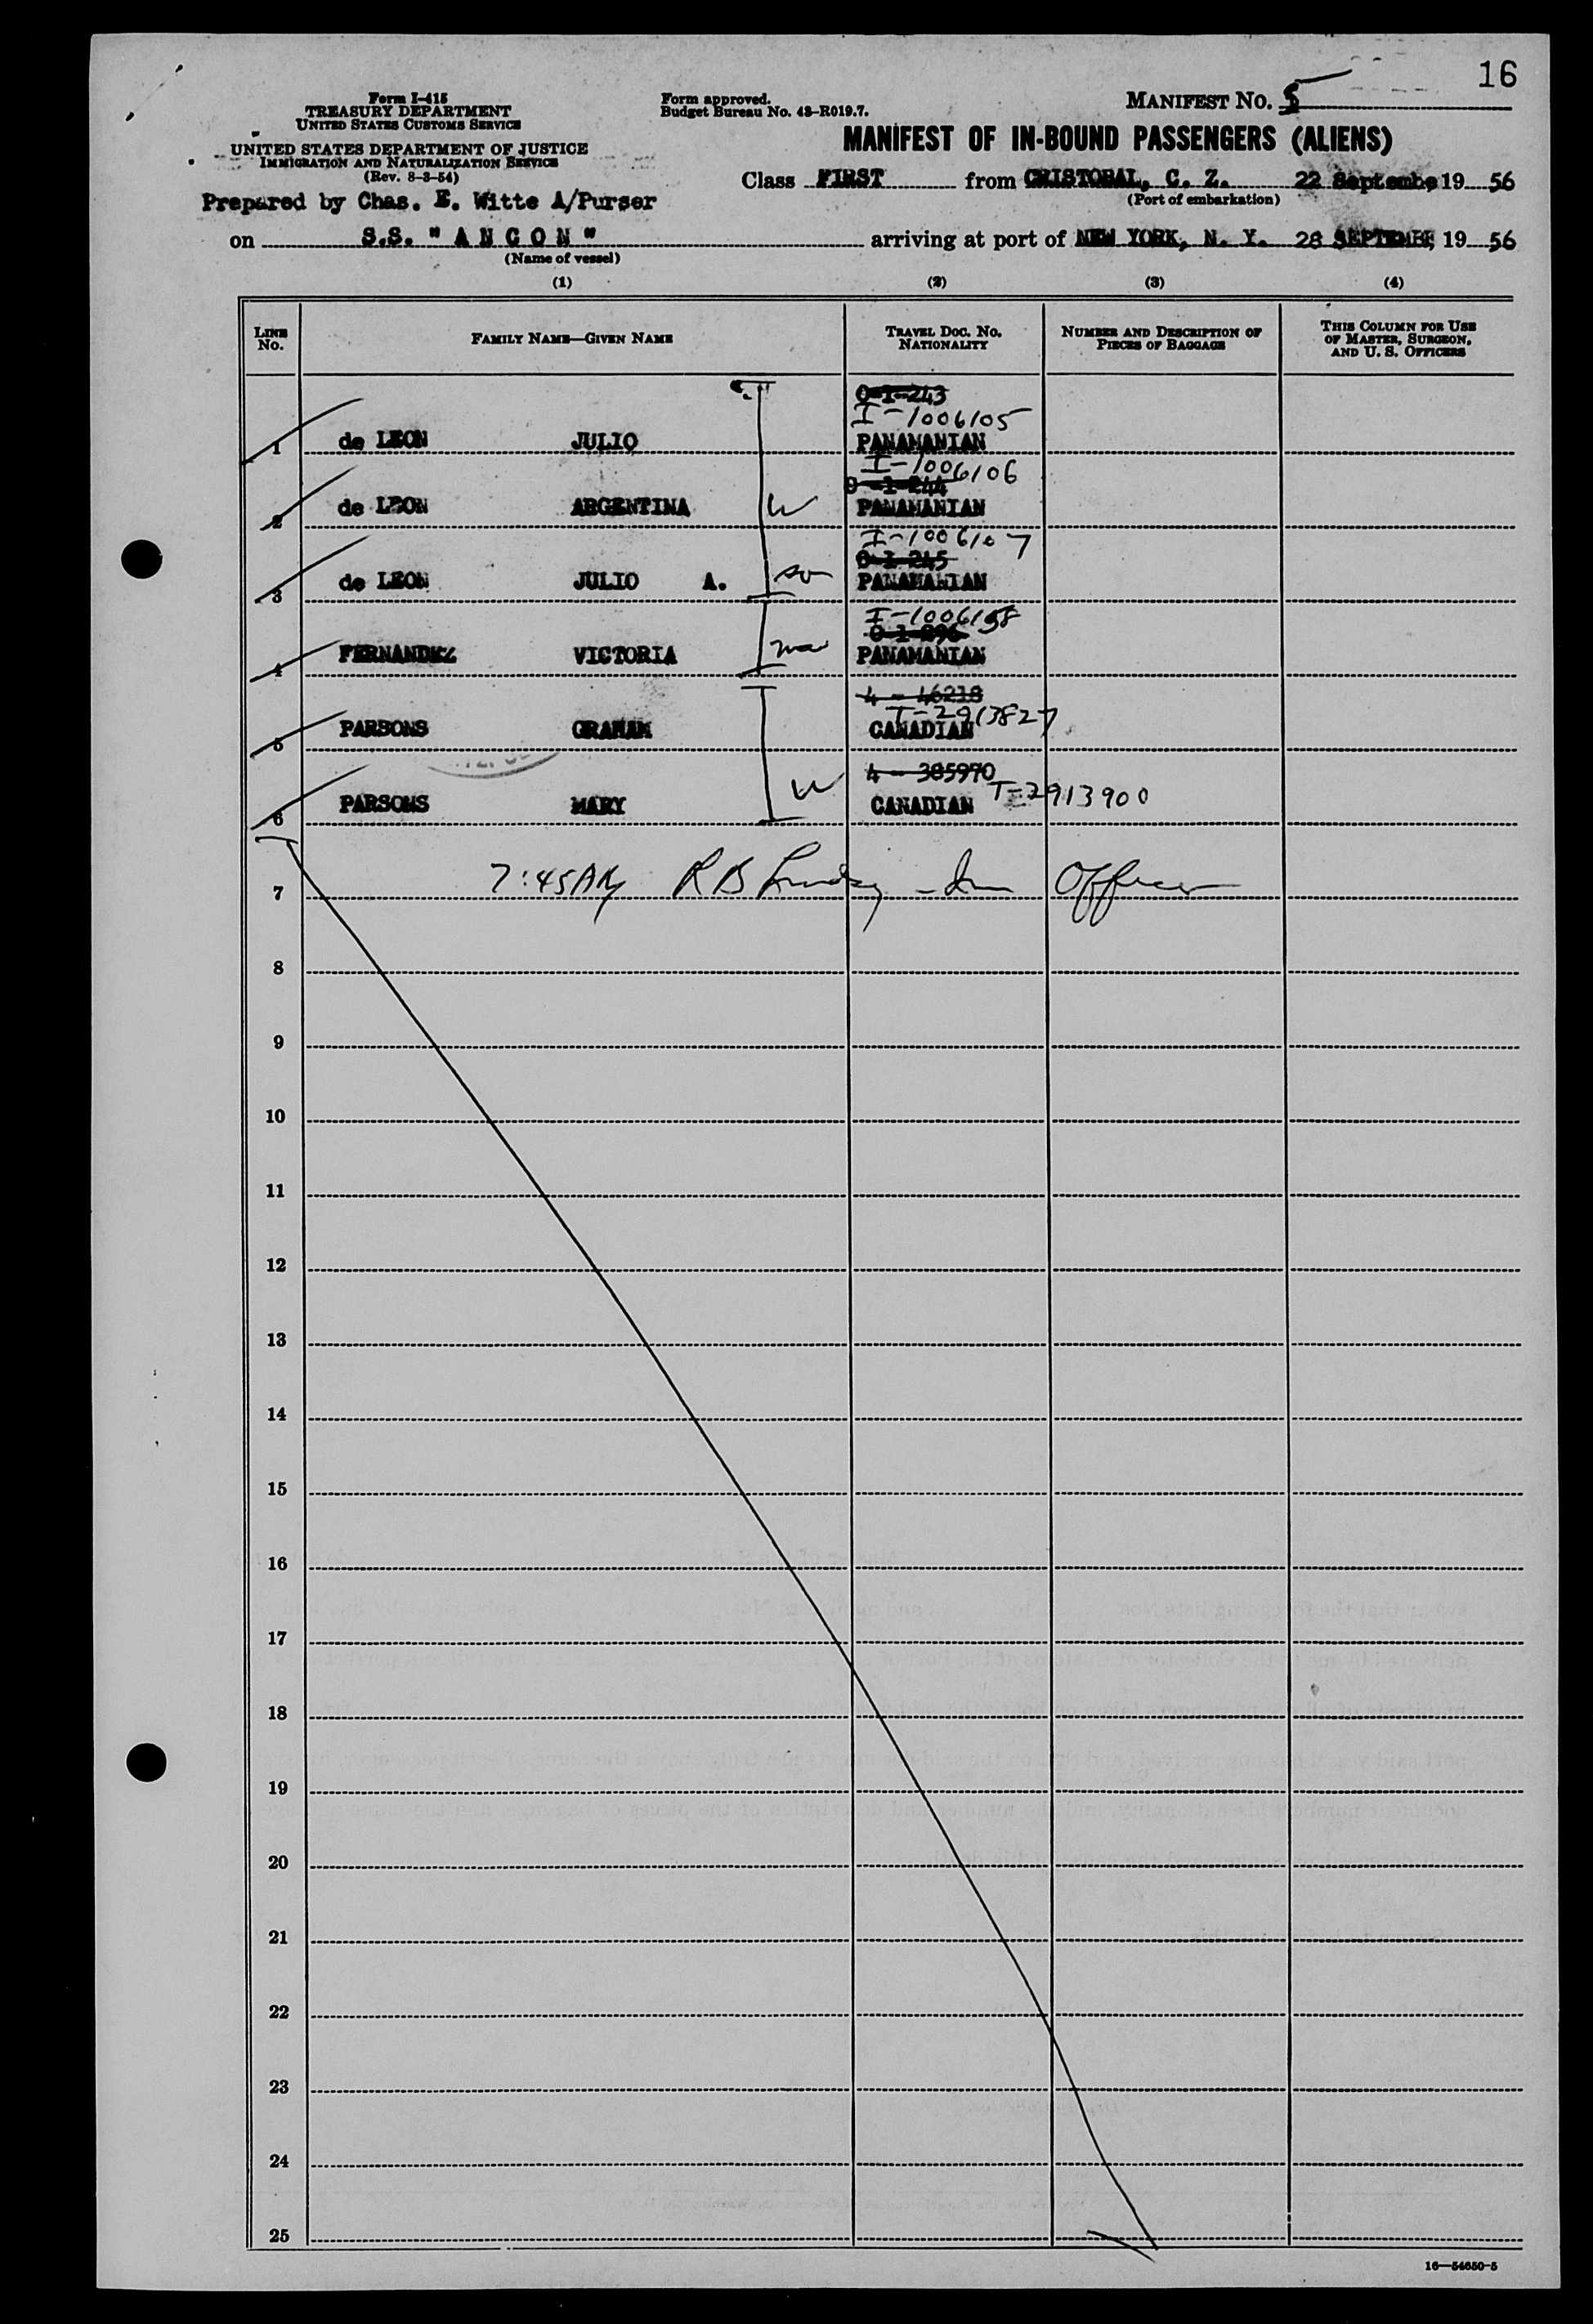 16
Form I-415
TREASURY DEPARTMENT
UNITED STATES CUSTOMS SERVICE
UNITED STATES DEPARTMENT OF JUSTICE
IMMIGRATION AND NATURALIZATION SERVICE
(Rev. 8-3-54)
Form approved.
Budget Bureau No. 43-R019.7.
MANIFEST NO. 5
MANIFEST OF IN-BOUND PASSENGERS (ALIENS)
Class FIRST from CRISTOBAL, C. Z. 22 Septembe, 19 56
(Port of embarkation)
Prepared by Chas. E. Witte A/Purser
on S.S. "ANCON" arriving at port of NEW YORK, N. Y. 28 SEPTEMBE, 19 56
(Name of vessel)
(1) (2) (3) (4)
LINE No. FAMILY NAME—GIVEN NAME TRAVEL DOC. NO. NATIONALITY NUMBER AND DESCRIPTION OF PIECES OF BAGGAGE THIS COLUMN FOR USE OF MASTER, SURGEON, AND U. S. OFFICERS
0-1-243
I-1006105
1 de LEON JULIO PANAMANIAN
I-1006106
0-1-244
2 de LEON ARGENTINA W PANAMANIAN
I-1006107
0-1-245
3 de LEON JULIO A. PANAMANIAN
0-1-296
4 FERNANDEZ VICTORIA PANAMANIAN
4 - 46218
T-2913827
5 PARSONS GRAHAM CANADIAN
4 - 385970
6 PARSONS MARY W CANADIAN T-2913900
7 7:45AM R B Officer
8
9
10
11
12
13
14
15
16
17
18
19
20
21
22
23
24
25
16—54650-5